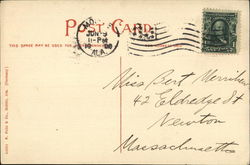 POST CARD
THIS SPACE MAY BE USED FOR
MO
JUN 3
11-PM
ALA.
Miss Bert Merrihew
42 Eldredge St
Newton
Massachusetts